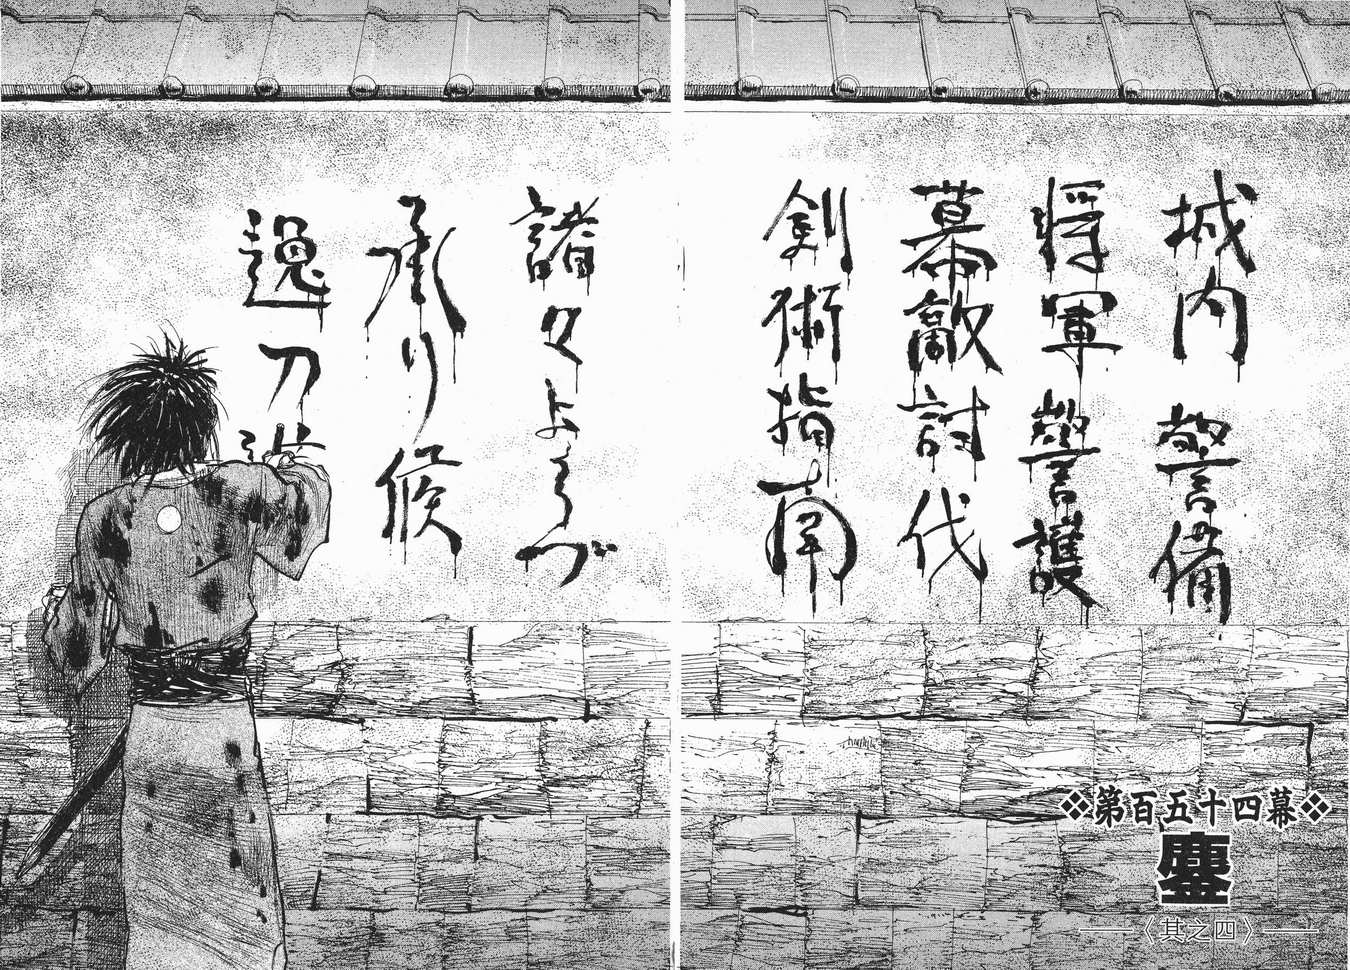 城内警備
将軍警護
幕敵討伐
剣術指南
諸々よろづ
承り候
逸刀
❖第百五十四幕❖
鏖
──《其之四》──